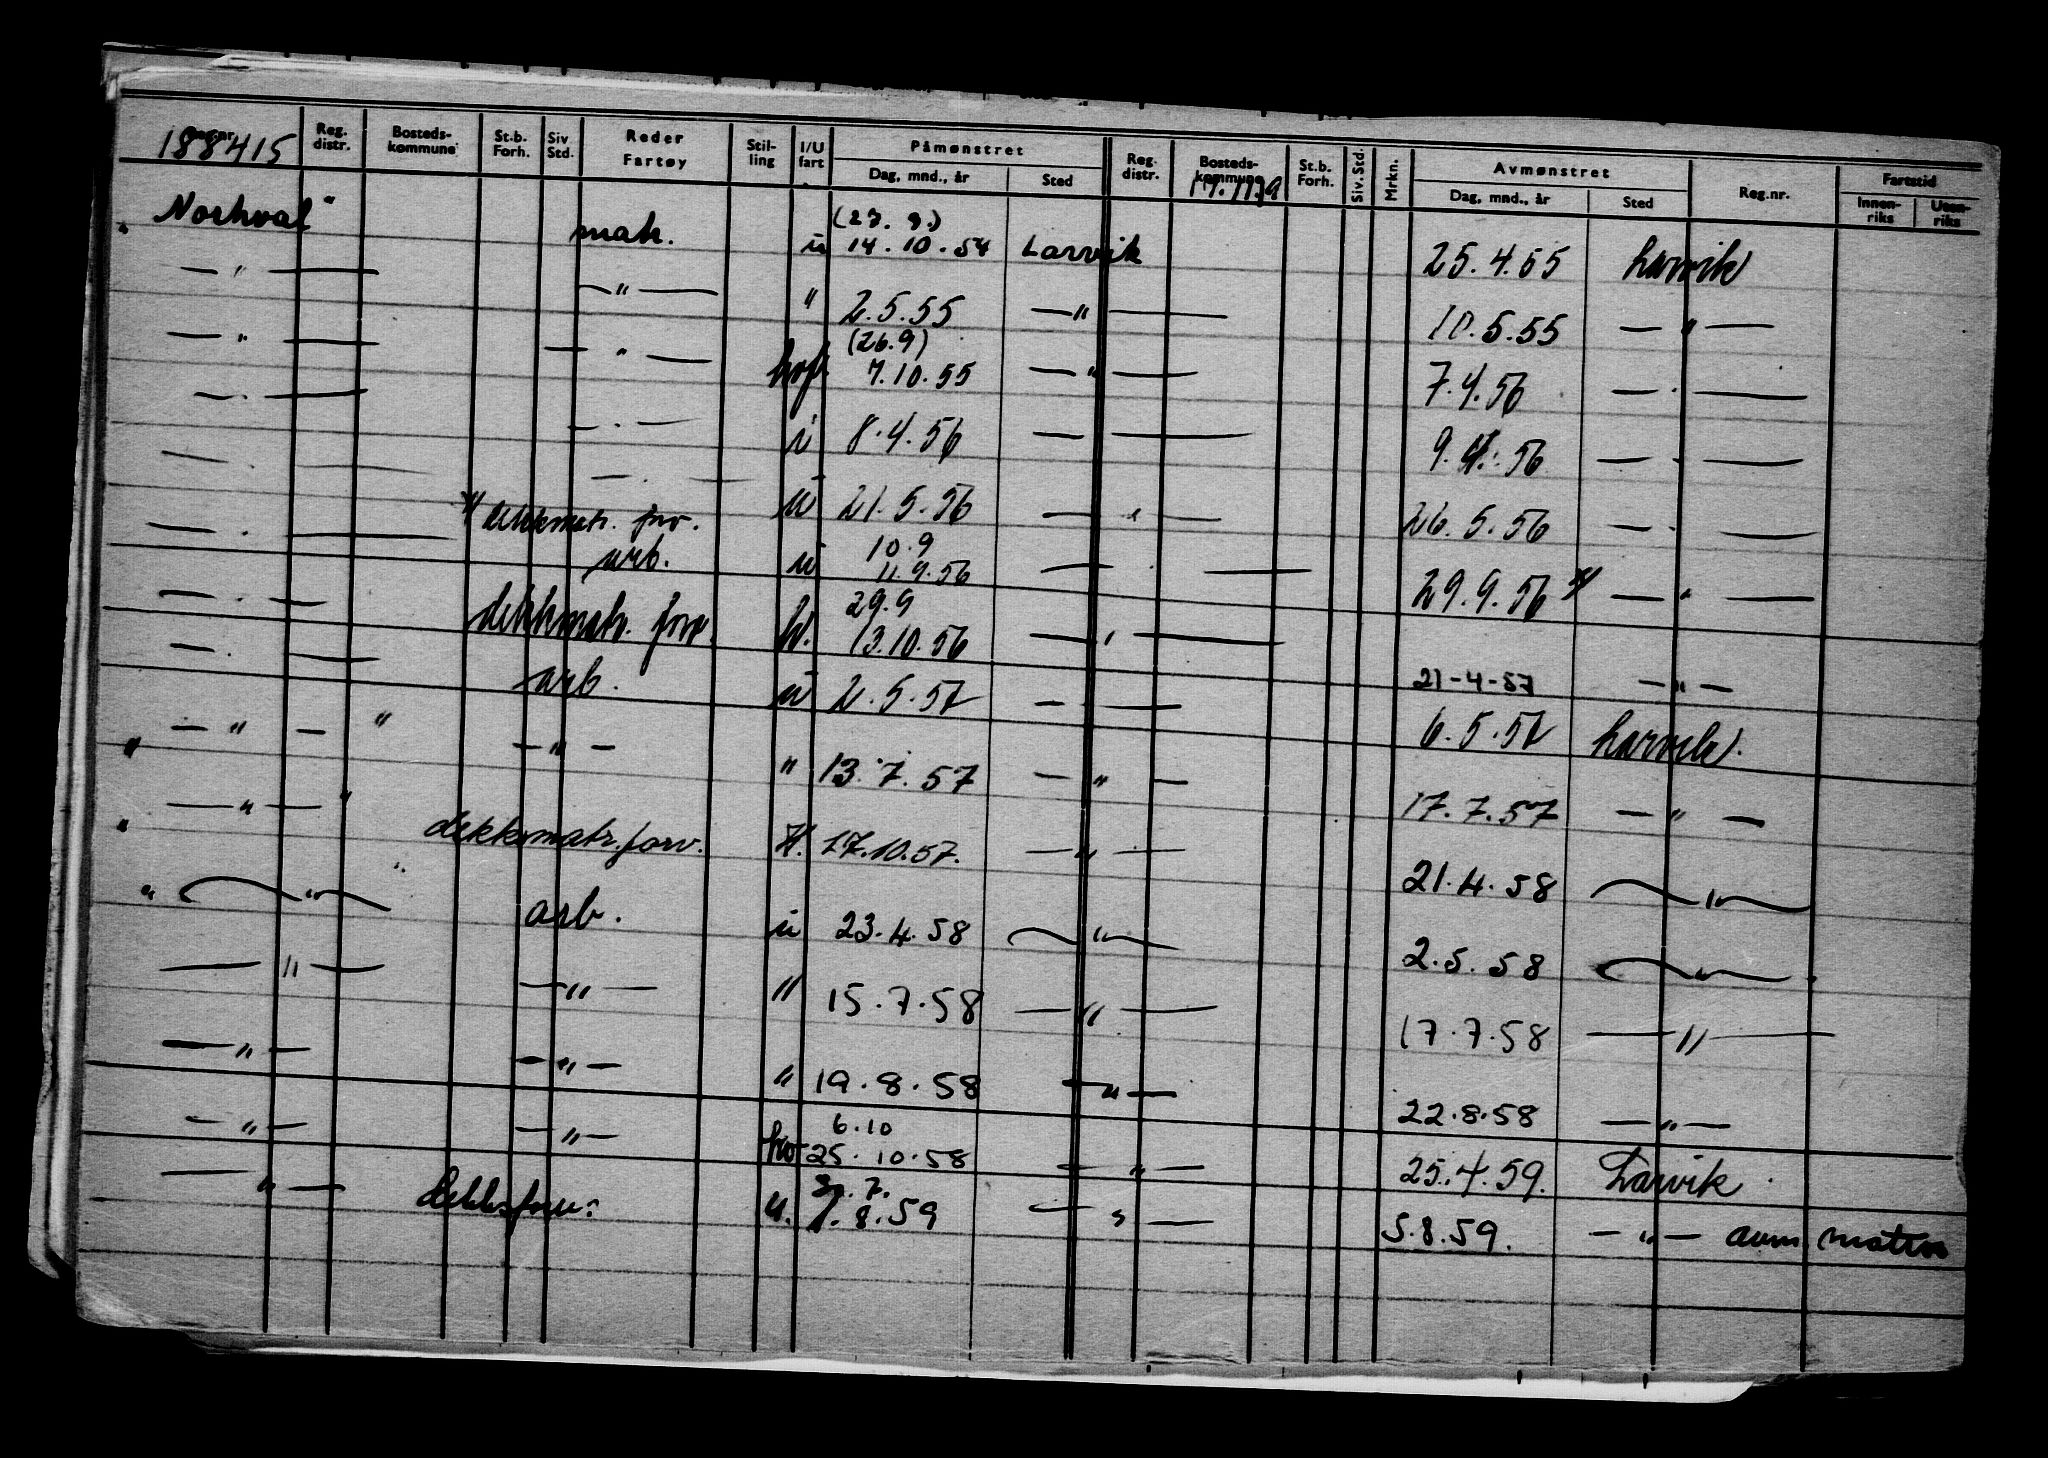 188415 Reg. distr. Bosteds-kommune St.b. Forh. Siv Std. Reder Fartøy Stil-ling I/U fart Påmønstret Dag, mnd., år Sted Reg. distr. Bosteds-kommune St.b. Forh. Siv. Std. Mrkn. Avmønstret Dag, mnd., år Sted Reg.nr. Fartstid Innen-riks Uten-riks
(27. 9.)
"Norhval" matr. u 14.10.54 Larvik 25.4.55 Larvik
— " — — " — " 2.5.55 — " — 10.5.55 — " —
(26.9)
— " — — " — hvf 7.10.55 — " — 7.4.56 — " —
— " — — " — u 8.4.56 — 9.4.56 — " —
— " — — " — u 21.5.56 — " — 26.5.56 — " —
x/ dekksmatr. forv.
10.9
— " — arb. u 11.9.56 — " — 29.9.56 x/ — " —
29.9
— " — dekkmatr. forv. hv. 13.10.56 — " — 21-4-57 — " —
— " — arb. u 2.5.57 — " — 6.5.57 Larvik.
" — " — " — " — " 13.7.57 — " — 17.7.57 — " —
" — " — " dekksmatr. forv. H. 17.10.57. — " — 21.4.58 — " —
" — " — arb. u 23.4.58 — " — 2.5.58 — " —
— " — — " — " 15.7.58 — " — 17.7.58 — " —
— " — — " — " 19.8.58 — " — 22.8.58 — " —
6.10
— " — — " — hv 25.10.58 — " — 25.4.59. Larvik
— " — dekksforv. u. 1.8.59 — " — 5.8.59. — " — avm.